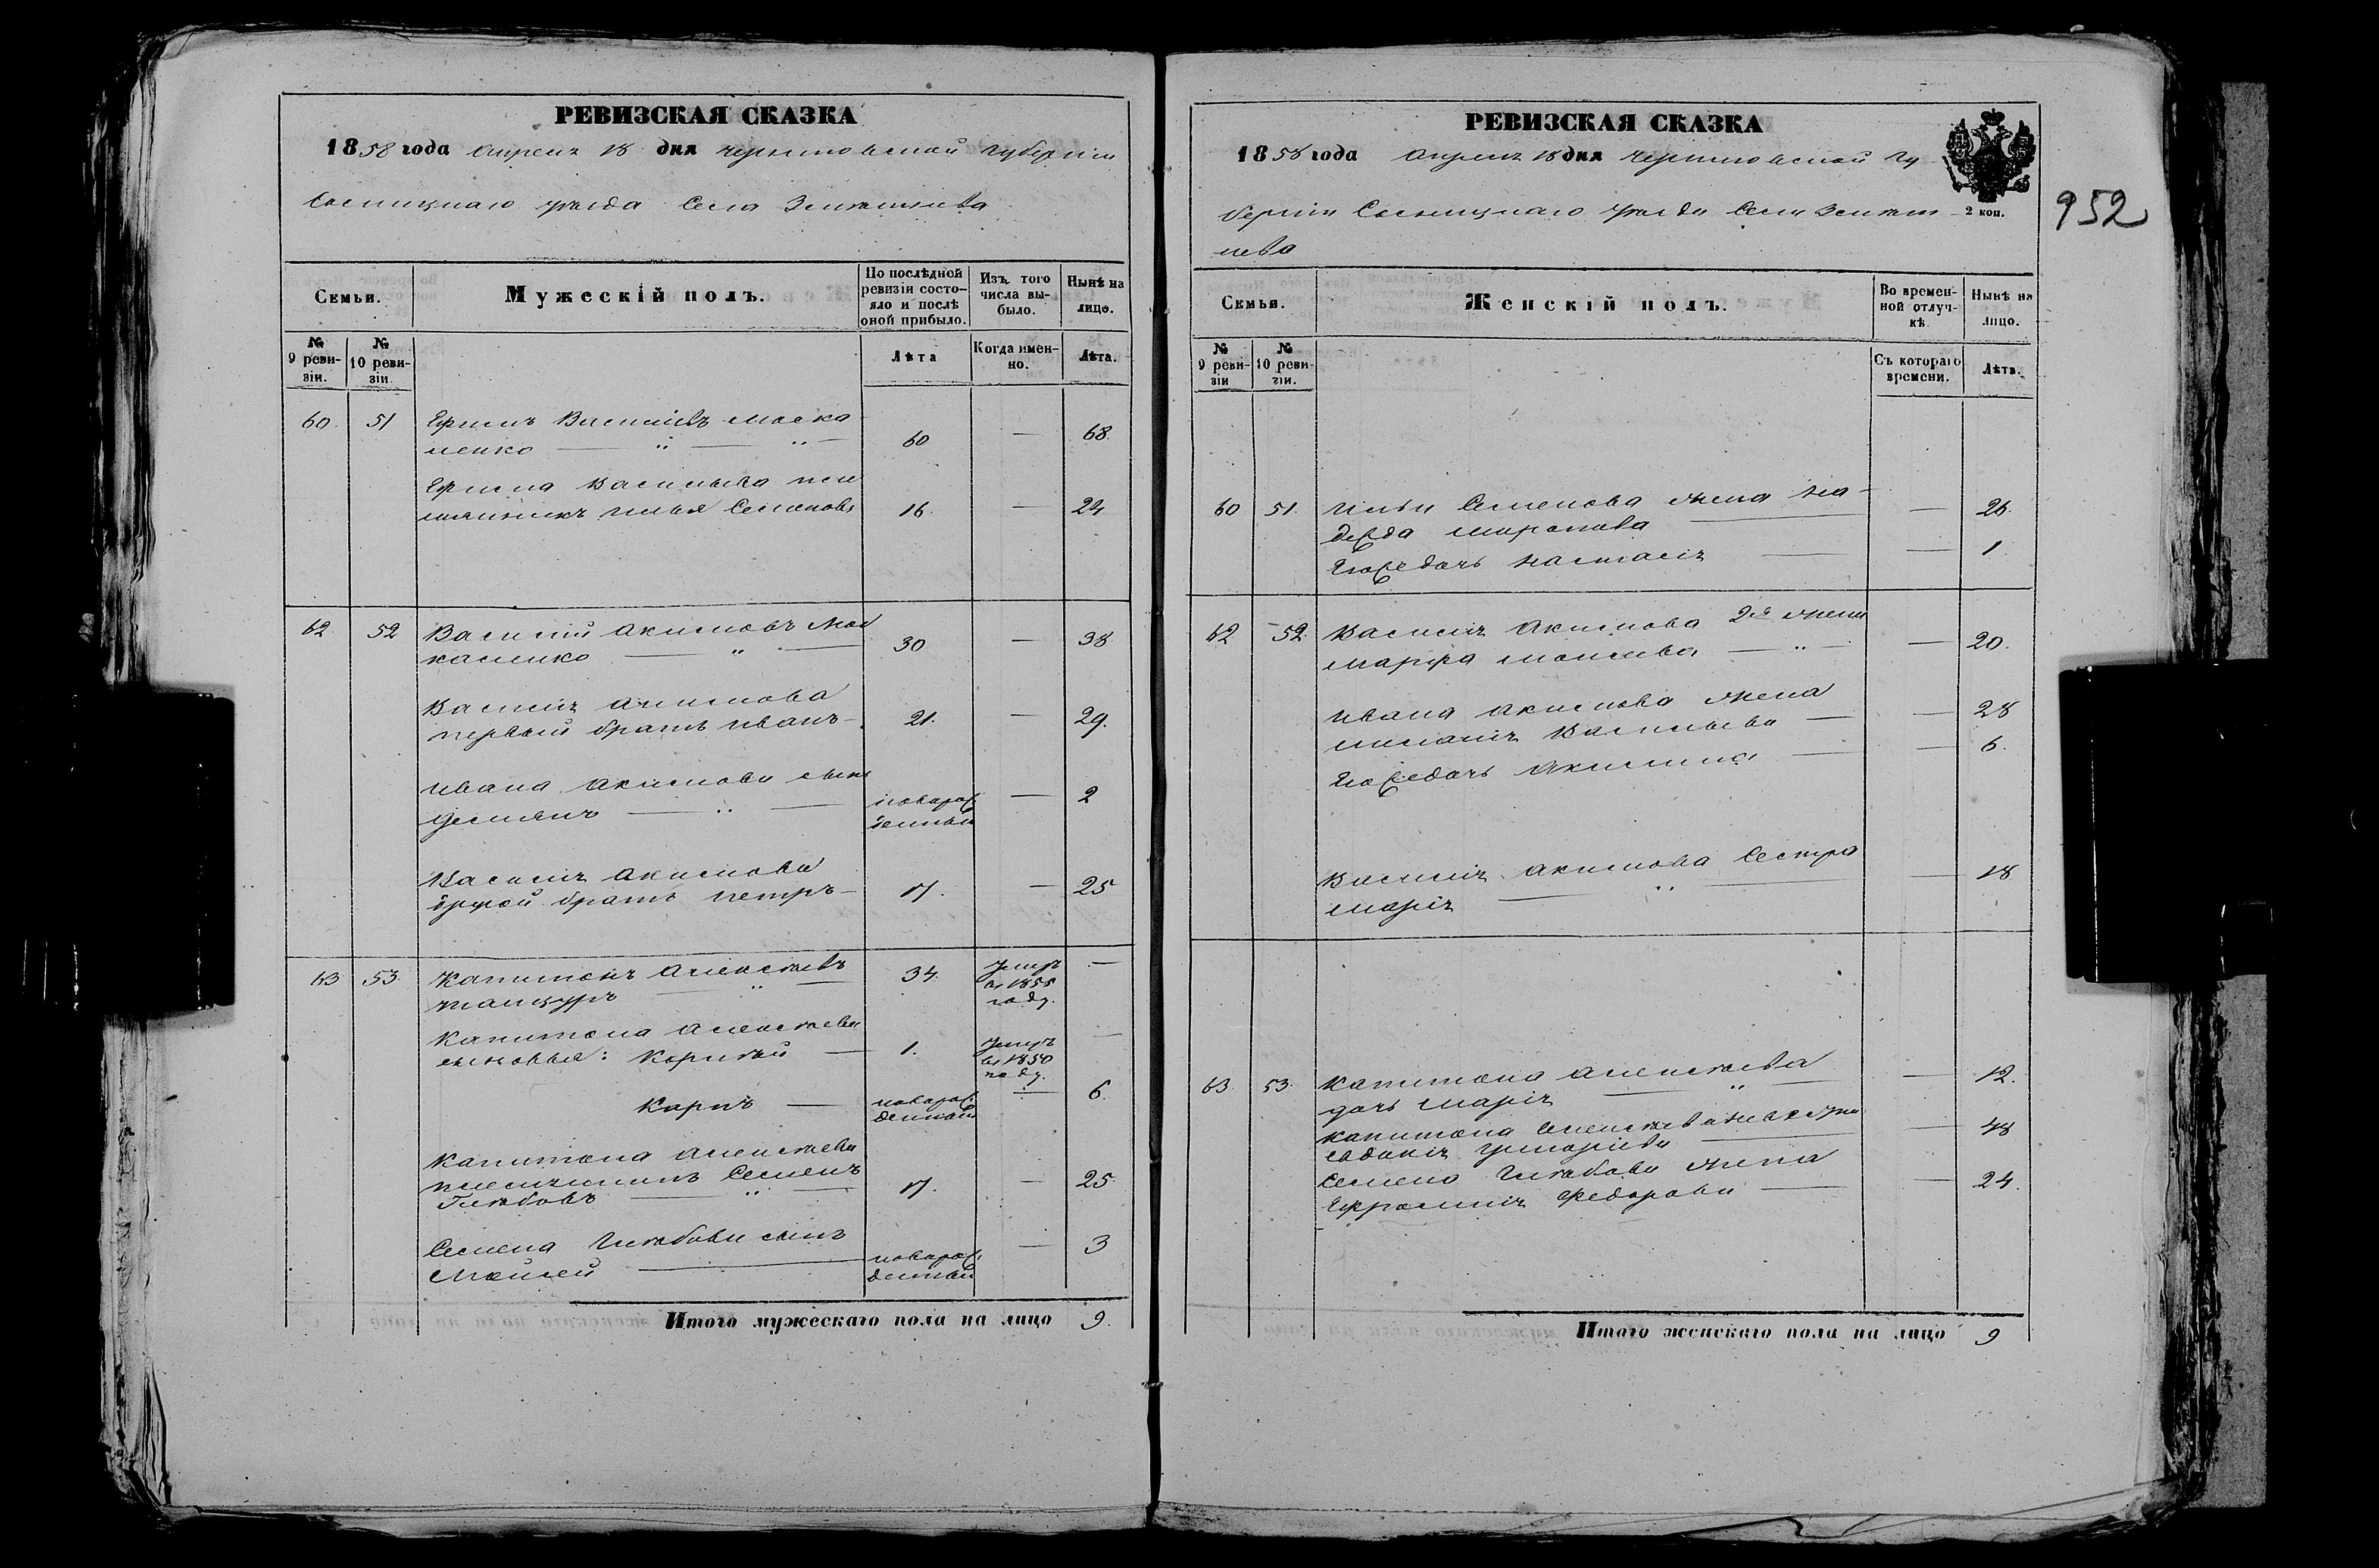 РЕВИЗСКАЯ СКАЗКА
1858 года Апреля 18 дня Черниговской Губернии
Сосницкаго уезда Села
Семьи.
Мужескій полъ.
По послѣдней ревизіи состояло и послѣ оной прибыло.
Изъ того числа выбыло.
Нынѣ на лицо.
№ 9 ревизіи.
№ 10 ревизіи.
Лѣта
Когда именно.
Лѣта.
60. 51 Василіевъ Моска
ленко — " — " — 60 — 68.
Васильева пле
мянникъ Илья Семеновъ 16. — 24
62 52 Василій Акимовъ Мос
каленко — " — 30 — 38
Василія Акимова
первый братъ Иванъ — 21. — 29.
Ивана Акимова сынъ
Демянъ — " — новорож
денный — 2
Василія Акимова
другой братъ Петръ — 17. — 25
63 53. Капитонъ Алексѣевъ
— " — 34. умеръ
въ 1855
году. —
Капитона Алексѣева
сыновья: Корнѣй — 1. умеръ
въ 1850
году. —
Карпъ — новорож
денный — 6.
Капитона Алексѣева
племянникъ Семенъ
Глѣбовъ — " — 17. — 25
Семена Глѣбова сынъ
Моисей — новорож
денный — 3
Итого мужескаго пола на лицо 9.
РЕВИЗСКАЯ СКАЗКА
1858 года Апреля 18 дня Черниговской Гу
берніи Сосницкаго уезда Села
нева
2 коп.
952
Семьи.
Женскій полъ.
Во временной отлучкѣ
Нынѣ на лицо.
№ 9 ревизіи
№ 10 ревизіи.
Съ котораго времени.
Лѣта.
60 51. Ильи Семенова жена На-
дежда Миронова — 26.
Ево дочь Настасія — 1.
62 52. Василія Акимова 2я жена
Марфа Моисеева — " — 20.
Ивана Акимова жена
Меланія Васильева — 28
Его дочь Акилина — 6.
Василія Акимова Сестра
Марія — " — 18
63. 53. Капитона Алексѣева
дочь Марія — " — 12.
Капитона Алексѣева
— 48
Семена Глѣбова жена
Ефросинія Федорова — 24.
Итого женскаго пола на лицо 9